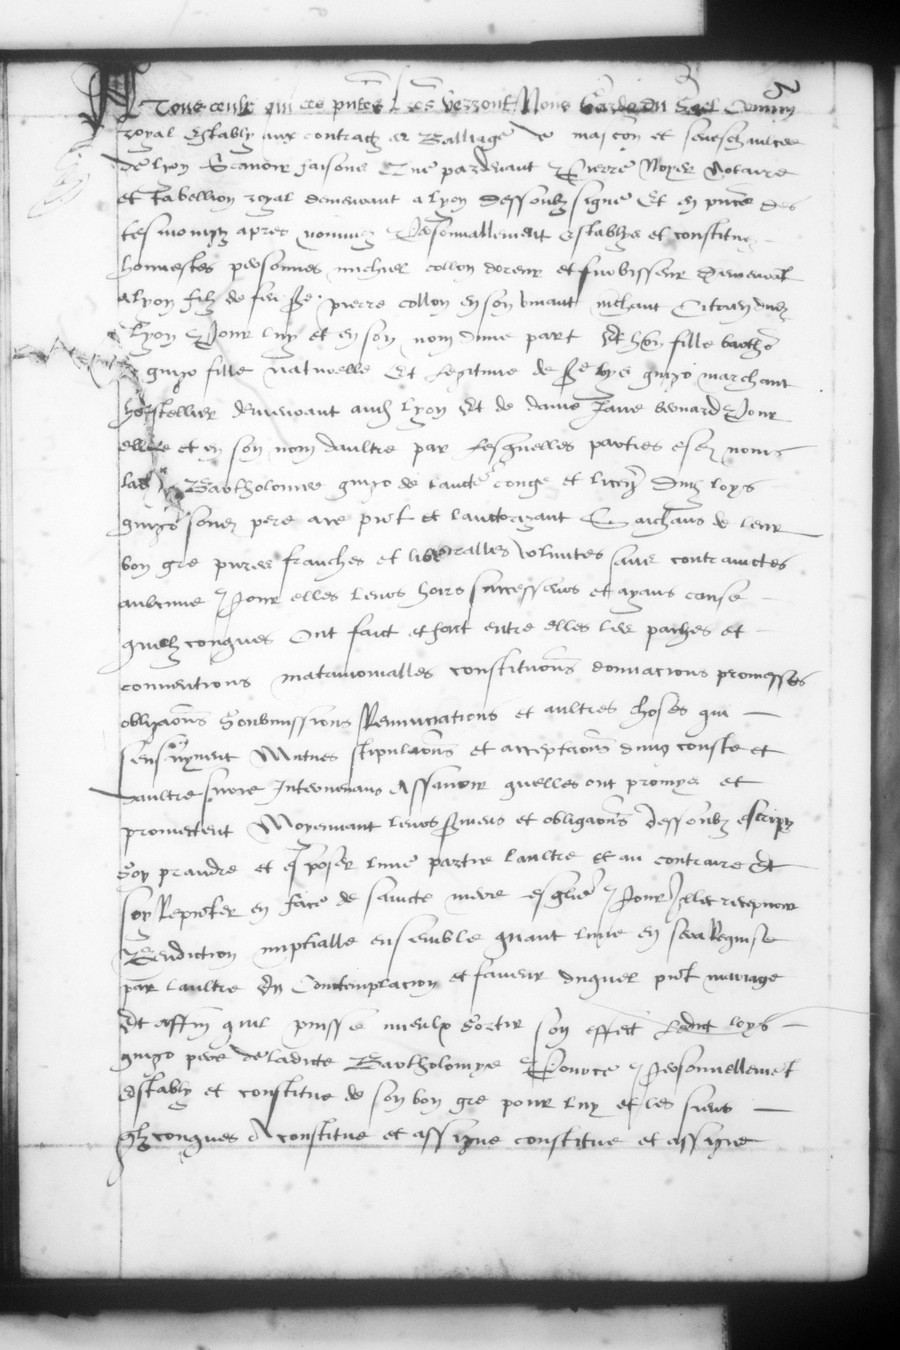 A Tous ceulx qui ces pntes Lres verront Nous Garde du Scel Commun
royal estably aux contractz es Balliage de mascon et seneschaulcee
de lyon Scavoir faisons Que pardevant Pierre Noyer Notaire
et tabellion royal demeurant a lyon dessoubz signe Et en pnce des
tesmoingz apres nommez Personnallement establyes et constituez
honnestes personnes michiel collon doreur et furbisseur demeurant
a lyon filz de feu sre pierre collon en son vivant mchant Citoien dudz
Lyon Pour luy et en son nom dune part Et hon fille barthe
guyo fille naturelle Et legitime de sre loys guyo marchant
hostellier demeurant aud lyon Et de dame Jane Bernard Pour
elle et en son nom daultre par lesquelles parties esd noms
lad Bartholomiee guyo de laucte conge et licence dud loys
guyo sond pere ace pnt et lauctorizant Saichans de leur
bon gre pures franches et liberalles voluntes sans contrainctes
aulcune Pour elles leurs hoirs successeurs et ayans cause
quelzconques Ont faict et font entre elles les paches et
conventions matrimonialles constitutions donnacions promesses
obligaons Soubmissions Renunciations et aultres choses qui
sensuyvent Mutues stipulaons et acceptaons dung couste et
daultre sur ce Intervenans Assavoir quelles ont promys et
promectent Moyennant leurs sermens et obligaons dessoubz escriptz
Soy prandre et esposer lune partie laultre et au contraire Et
soy Repnter en face de saincte mere esglise Pour Illec recepvoir
Benediction nuptialle ensemble quant lune en sera Requise
par laultre En Contemplacion et faveur duquel pnt mariage
Et affin quil puisse mieulx Sortir son effect Ledict loys
guyo pere de ladicte Bartholomye Pource Personnellement
estably et constitue de son bon gre pour luy et les siens
qlzconques A constitue et assigne constitue et assigne